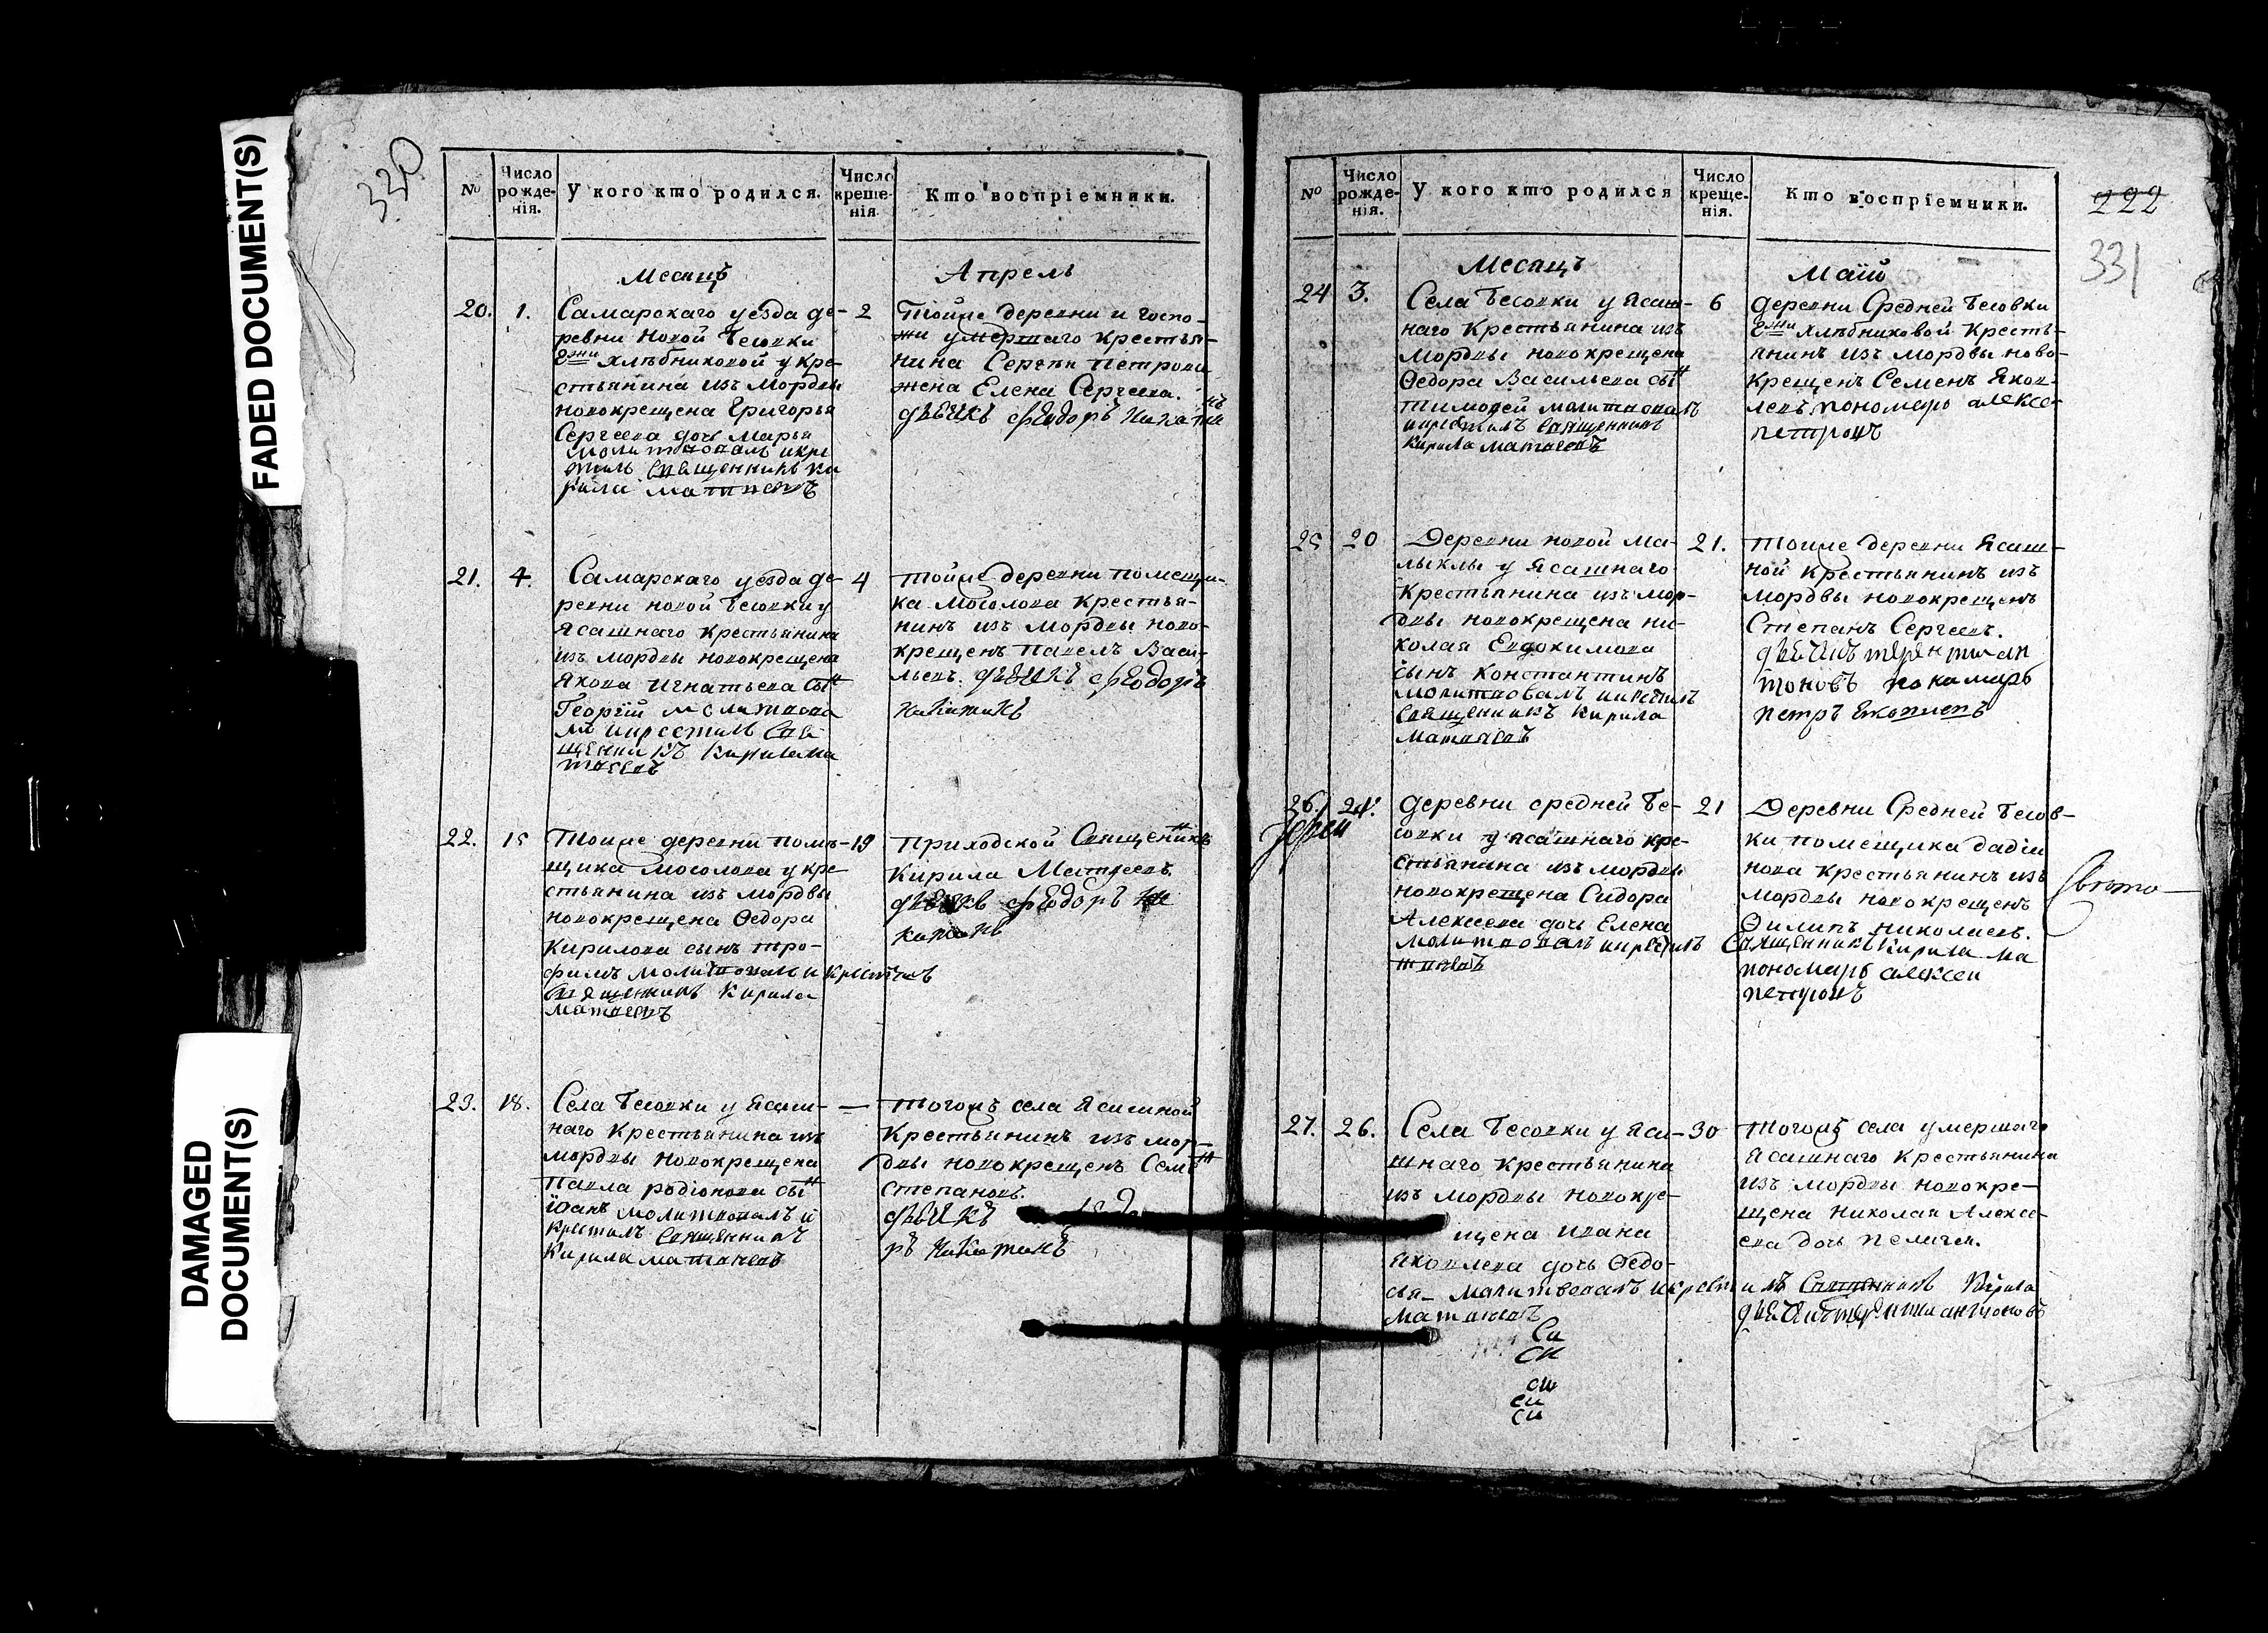 FADED DOCUMENT(S)
DAMAGED
DOCUMENT(S)
330
№
Число
рожде-
нія.
У кого кто родился.
Число
креще-
нія.
Кто воспріемники.
Месяцъ
Апрель
20.
1.
Самарскаго уезда де-
ревни новой Бесовки
гжи Хлѣбниковой у кре-
стьянина изъ мордвы
новокрещена Григорья
Сергеева дочь Марья
молитвовалъ и кре
стилъ священникъ ки
рила матвѣевъ
2
Тойже деревни и госпо-
жи умершаго крестья-
нина Сергѣя Петрова
жена Елена Сергеева.
дьячикъ феодоръ никитинъ
21.
4.
Самарскаго уезда де-
ревни новой Бесовки у
Ясашнаго крестьянина
изъ мордвы новокрещена
Якова Игнатьева сынъ
Георгій молитвова
лъ и крестилъ свя
щенникъ Кирила ма
твѣевъ
4
тойже деревни помещи-
ка Мосолова крестья-
нинъ изъ мордвы ново-
крещенъ Павелъ Васи-
льевъ. дьячикъ феодоръ
никитинъ
22.
15
Тойже деревни помѣ-
щика Мосолова у кре
стьянина изъ мордвы
новокрещена Ѳедора
Кирилова сынъ тро-
фимъ молитвовалъ и крестилъ
священникъ Кирила
матвѣевъ
19
приходской Священникъ
Кирила Матвеевъ.
дьячикъ феодоръ ни
китинъ
23.
18.
Села Бесовки у Ясаш-
наго крестьянина изъ
мордвы новокрещена
Павла родіонова сынъ
іоанъ молитвовалъ и
крестилъ священникъ
Кирила матвѣевъ
—
тогожъ села Ясашной
крестьянинъ изъ мор-
двы новокрещенъ Семенъ
степановъ.
дьячикъ феодо
ръ никитинъ
222
331
№
Число
рожде-
нія.
У кого кто родился
Число
креще-
нія.
Кто воспріемники.
Месяцъ
Маій
24
3.
Села Бесовки у Ясаш-
наго крестьянина изъ
мордвы новокрещена
Ѳедора Васильева сынъ
тимоѳей молитвовалъ
и крестилъ священникъ
Кирила матвѣевъ
6
деревни Средней Бесовки
гжи Хлѣбниковой кресть-
янинъ изъ мордвы ново-
крещенъ Семенъ Яков-
левъ пономарь алексе
петровъ
25
20
Деревни новой Ма-
лыклы у Ясашнаго
крестьянина изъ мор-
двы новокрещена ни-
колая Евдокимова
сынъ Константинъ
молитвовалъ и крестилъ
священникъ Кирила
матвѣевъ
21.
тойже деревни Ясаш-
ной крестьянинъ изъ
мордвы новокрещенъ
Степанъ Сергеевъ.
дьячикъ терентии ан
тоновъ пономарь
петръ
26.
21.
деревни средней Бе-
совки у ясашнаго кре-
стьянина изъ мордвы
новокрещена Сидора
Алексеева дочь Елена
молитвовалъ и крестилъ Священникъ Кирила ма
твѣевъ
21
Деревни Средней Бесов-
ки помещика дадія
нова крестьянинъ изъ
мордвы новокрещенъ
Ѳилипъ Николаевъ.
пономарь алексеи
петровъ
27.
26.
Села Бесовки у Яса-
шнаго крестьянина
изъ мордвы новокре-
щена Ивана
Яковлева дочь Ѳедо-
сья молитвовалъ и крестилъ Священникъ Кирила
матвѣевъ
30
тогожъ села умершаго
Ясашнаго крестьянина
изъ мордвы новокре-
щена Николая Алексе-
ева дочь Пелагея.
дьячикъ терентии антоновъ
Си
си
си
си
си